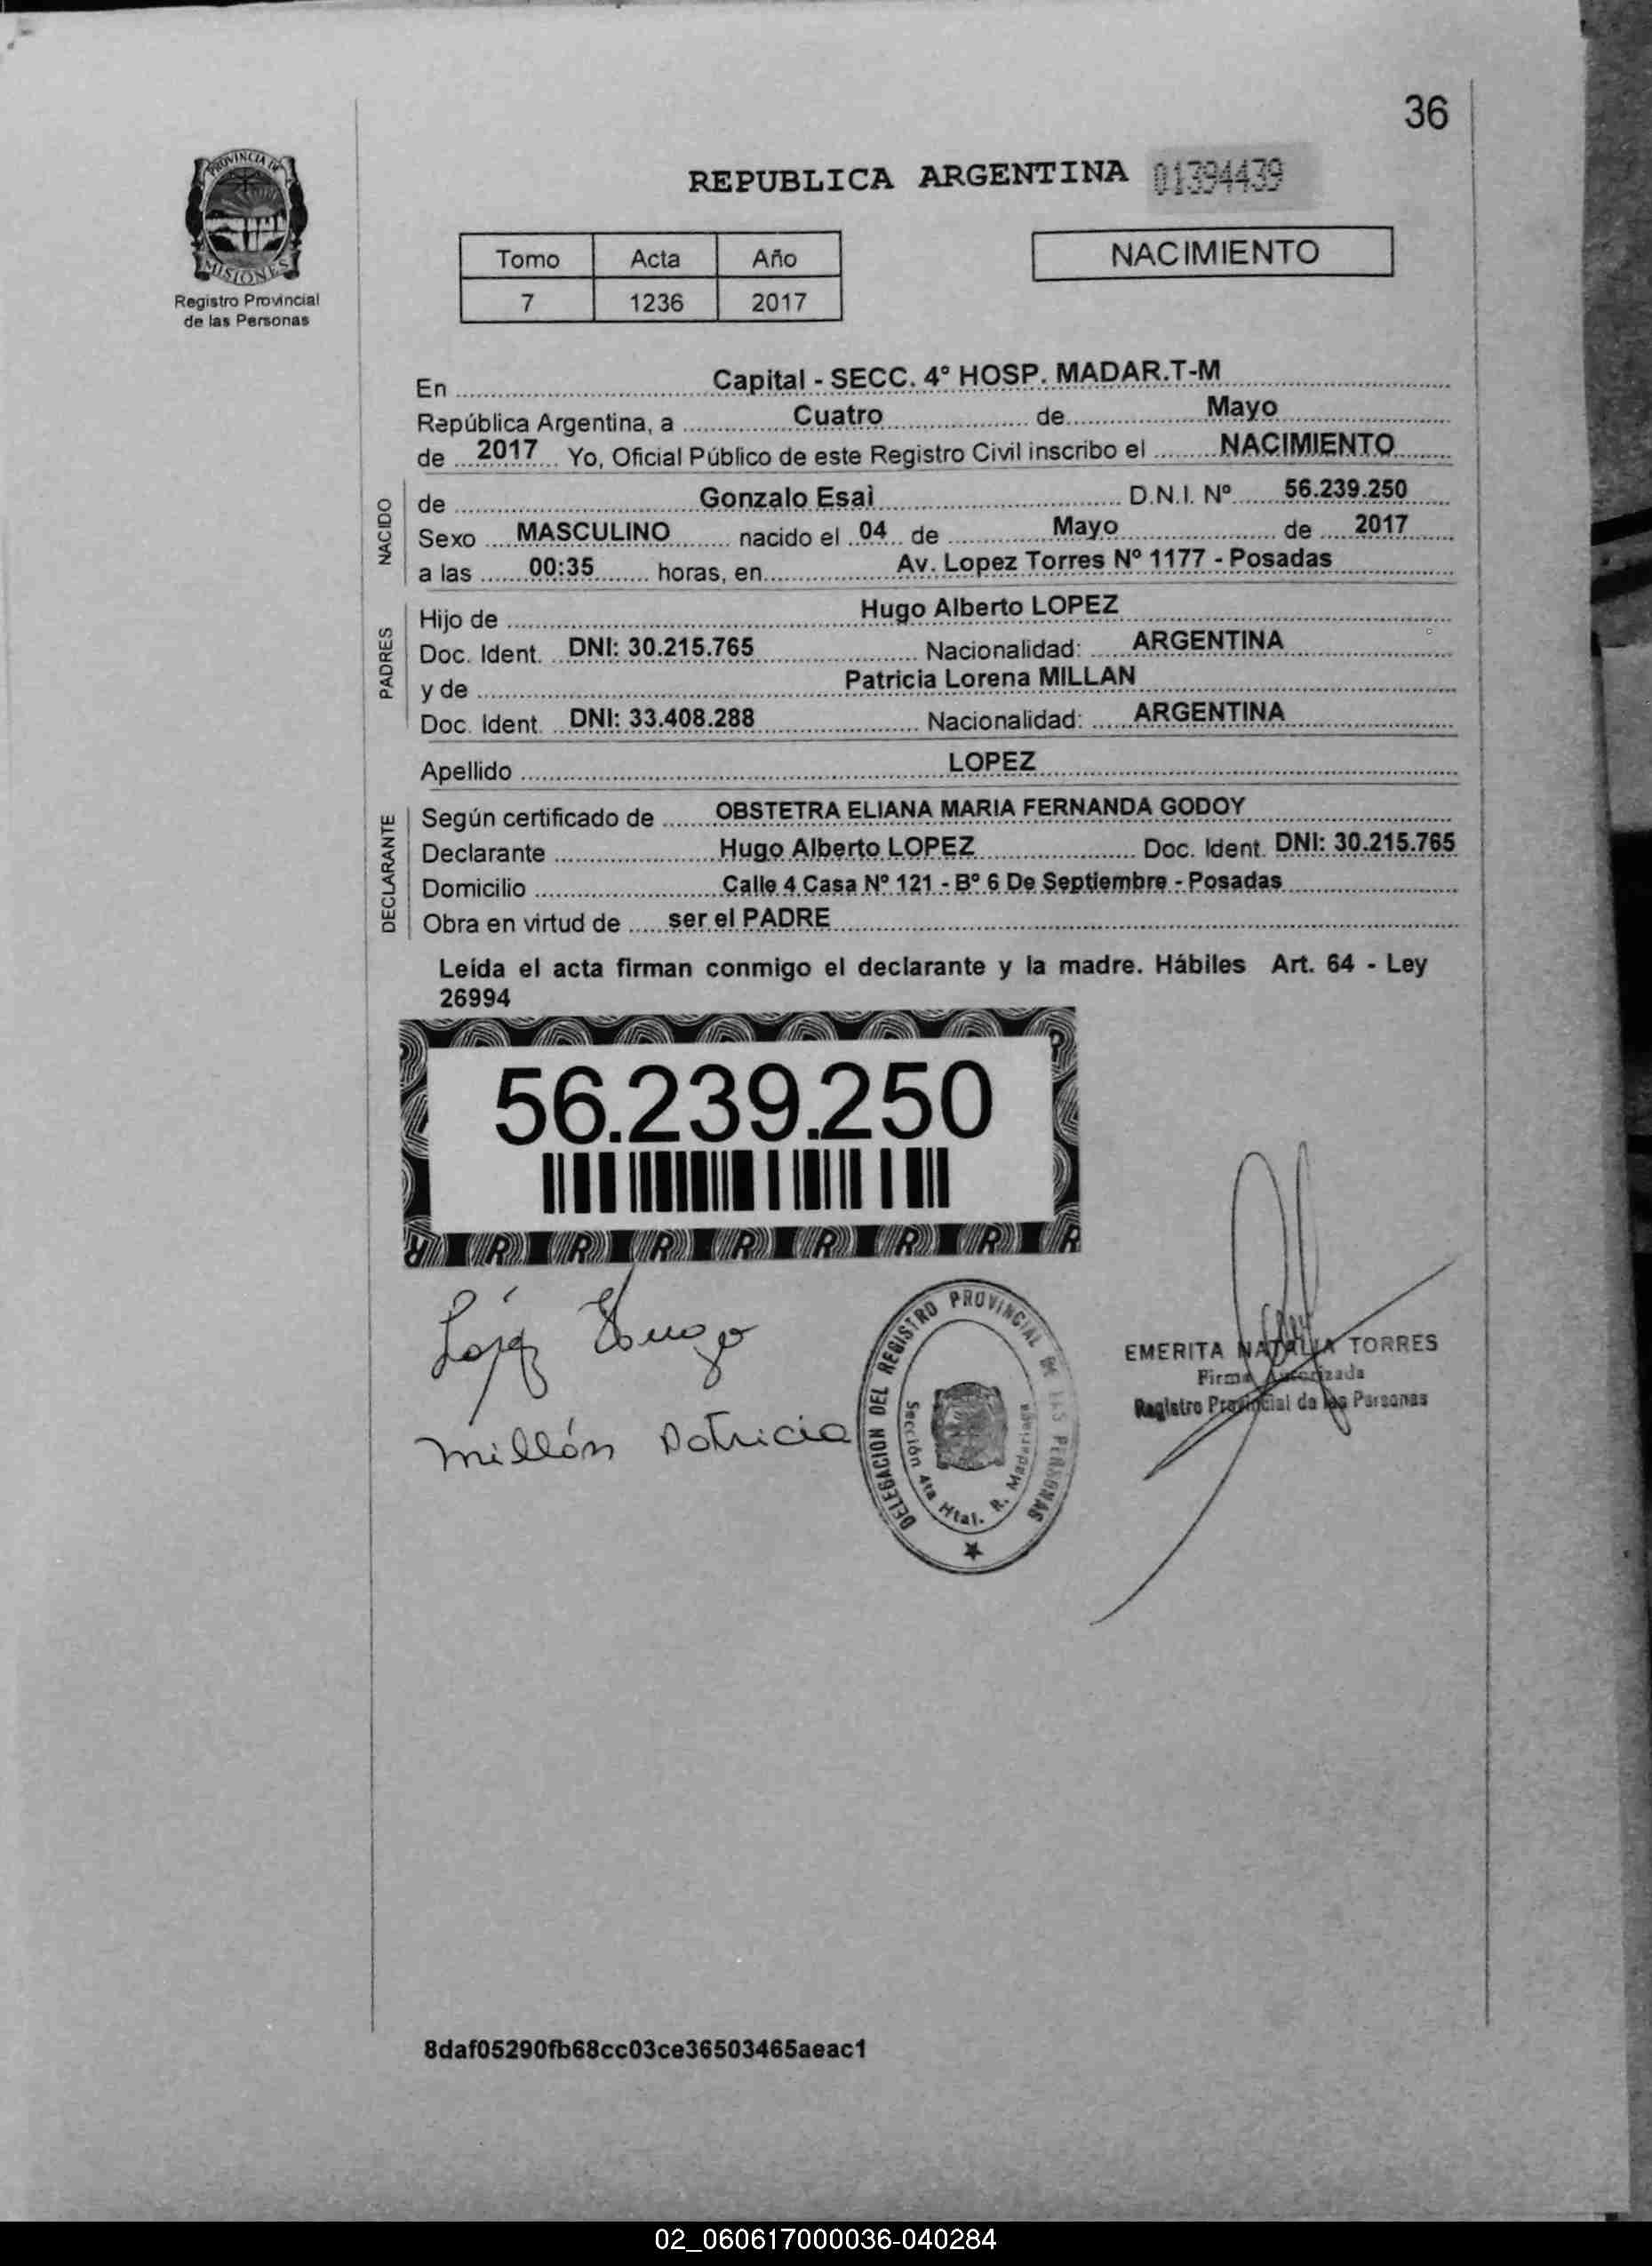 36
PROVINCIA DE
MISIONES
Registro Provincial
de las Personas
REPUBLICA ARGENTINA 01394439
Tomo Acta Año
7 1236 2017
NACIMIENTO
En Capital - SECC. 4° HOSP. MADAR.T-M
República Argentina, a Cuatro de Mayo
de 2017 Yo, Oficial Público de este Registro Civil inscribo el NACIMIENTO
NACIDO
de Gonzalo Esaì D.N.I. Nº 56.239.250
Sexo MASCULINO nacido el 04 de Mayo de 2017
a las 00:35 horas, en Av. Lopez Torres Nº 1177 - Posadas
PADRES
Hijo de Hugo Alberto LOPEZ
Doc. Ident. DNI: 30.215.765 Nacionalidad: ARGENTINA
y de Patricia Lorena MILLAN
Doc. Ident. DNI: 33.408.288 Nacionalidad: ARGENTINA
Apellido LOPEZ
DECLARANTE
Según certificado de OBSTETRA ELIANA MARIA FERNANDA GODOY
Declarante Hugo Alberto LOPEZ Doc. Ident. DNI: 30.215.765
Domicilio Calle 4 Casa Nº 121 - Bº 6 De Septiembre - Posadas
Obra en virtud de ser el PADRE
Leida el acta firman conmigo el declarante y la madre. Hábiles Art. 64 - Ley
26994
56.239.250
López Hugo
Millán Patricia
DELEGACION DEL REGISTRO PROVINCIAL DE LAS PERSONAS
Sección 4ta Htal. R. Madariaga
EMERITA NATALIA TORRES
Firma Autorizada
Registro Provincial de las Personas
8daf05290fb68cc03ce36503465aeac1
02_060617000036-040284